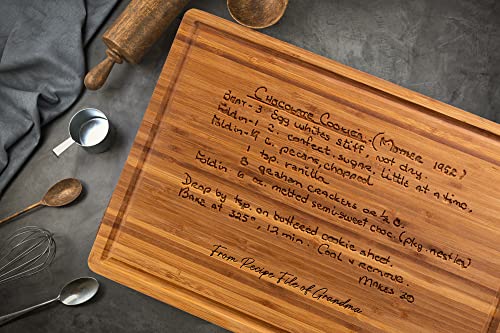 Chocolate Cookies - (Mother 1952)
Beat - 3 Egg whites stiff, not dry.
Foldin - 1 c. confect. sugar, little at a time,
Foldin - ½ c. pecans, chopped
1 tsp. vanilla
8 graham crackers or ½ c.
Foldin 6 oz. melted semi-sweet choc. (pkg. nestles)
Drop by tsp. on buttered cookie sheet.
Bake at 325°, 12 min. Cool & remove.
Makes 30
From Recipe File of Grandma